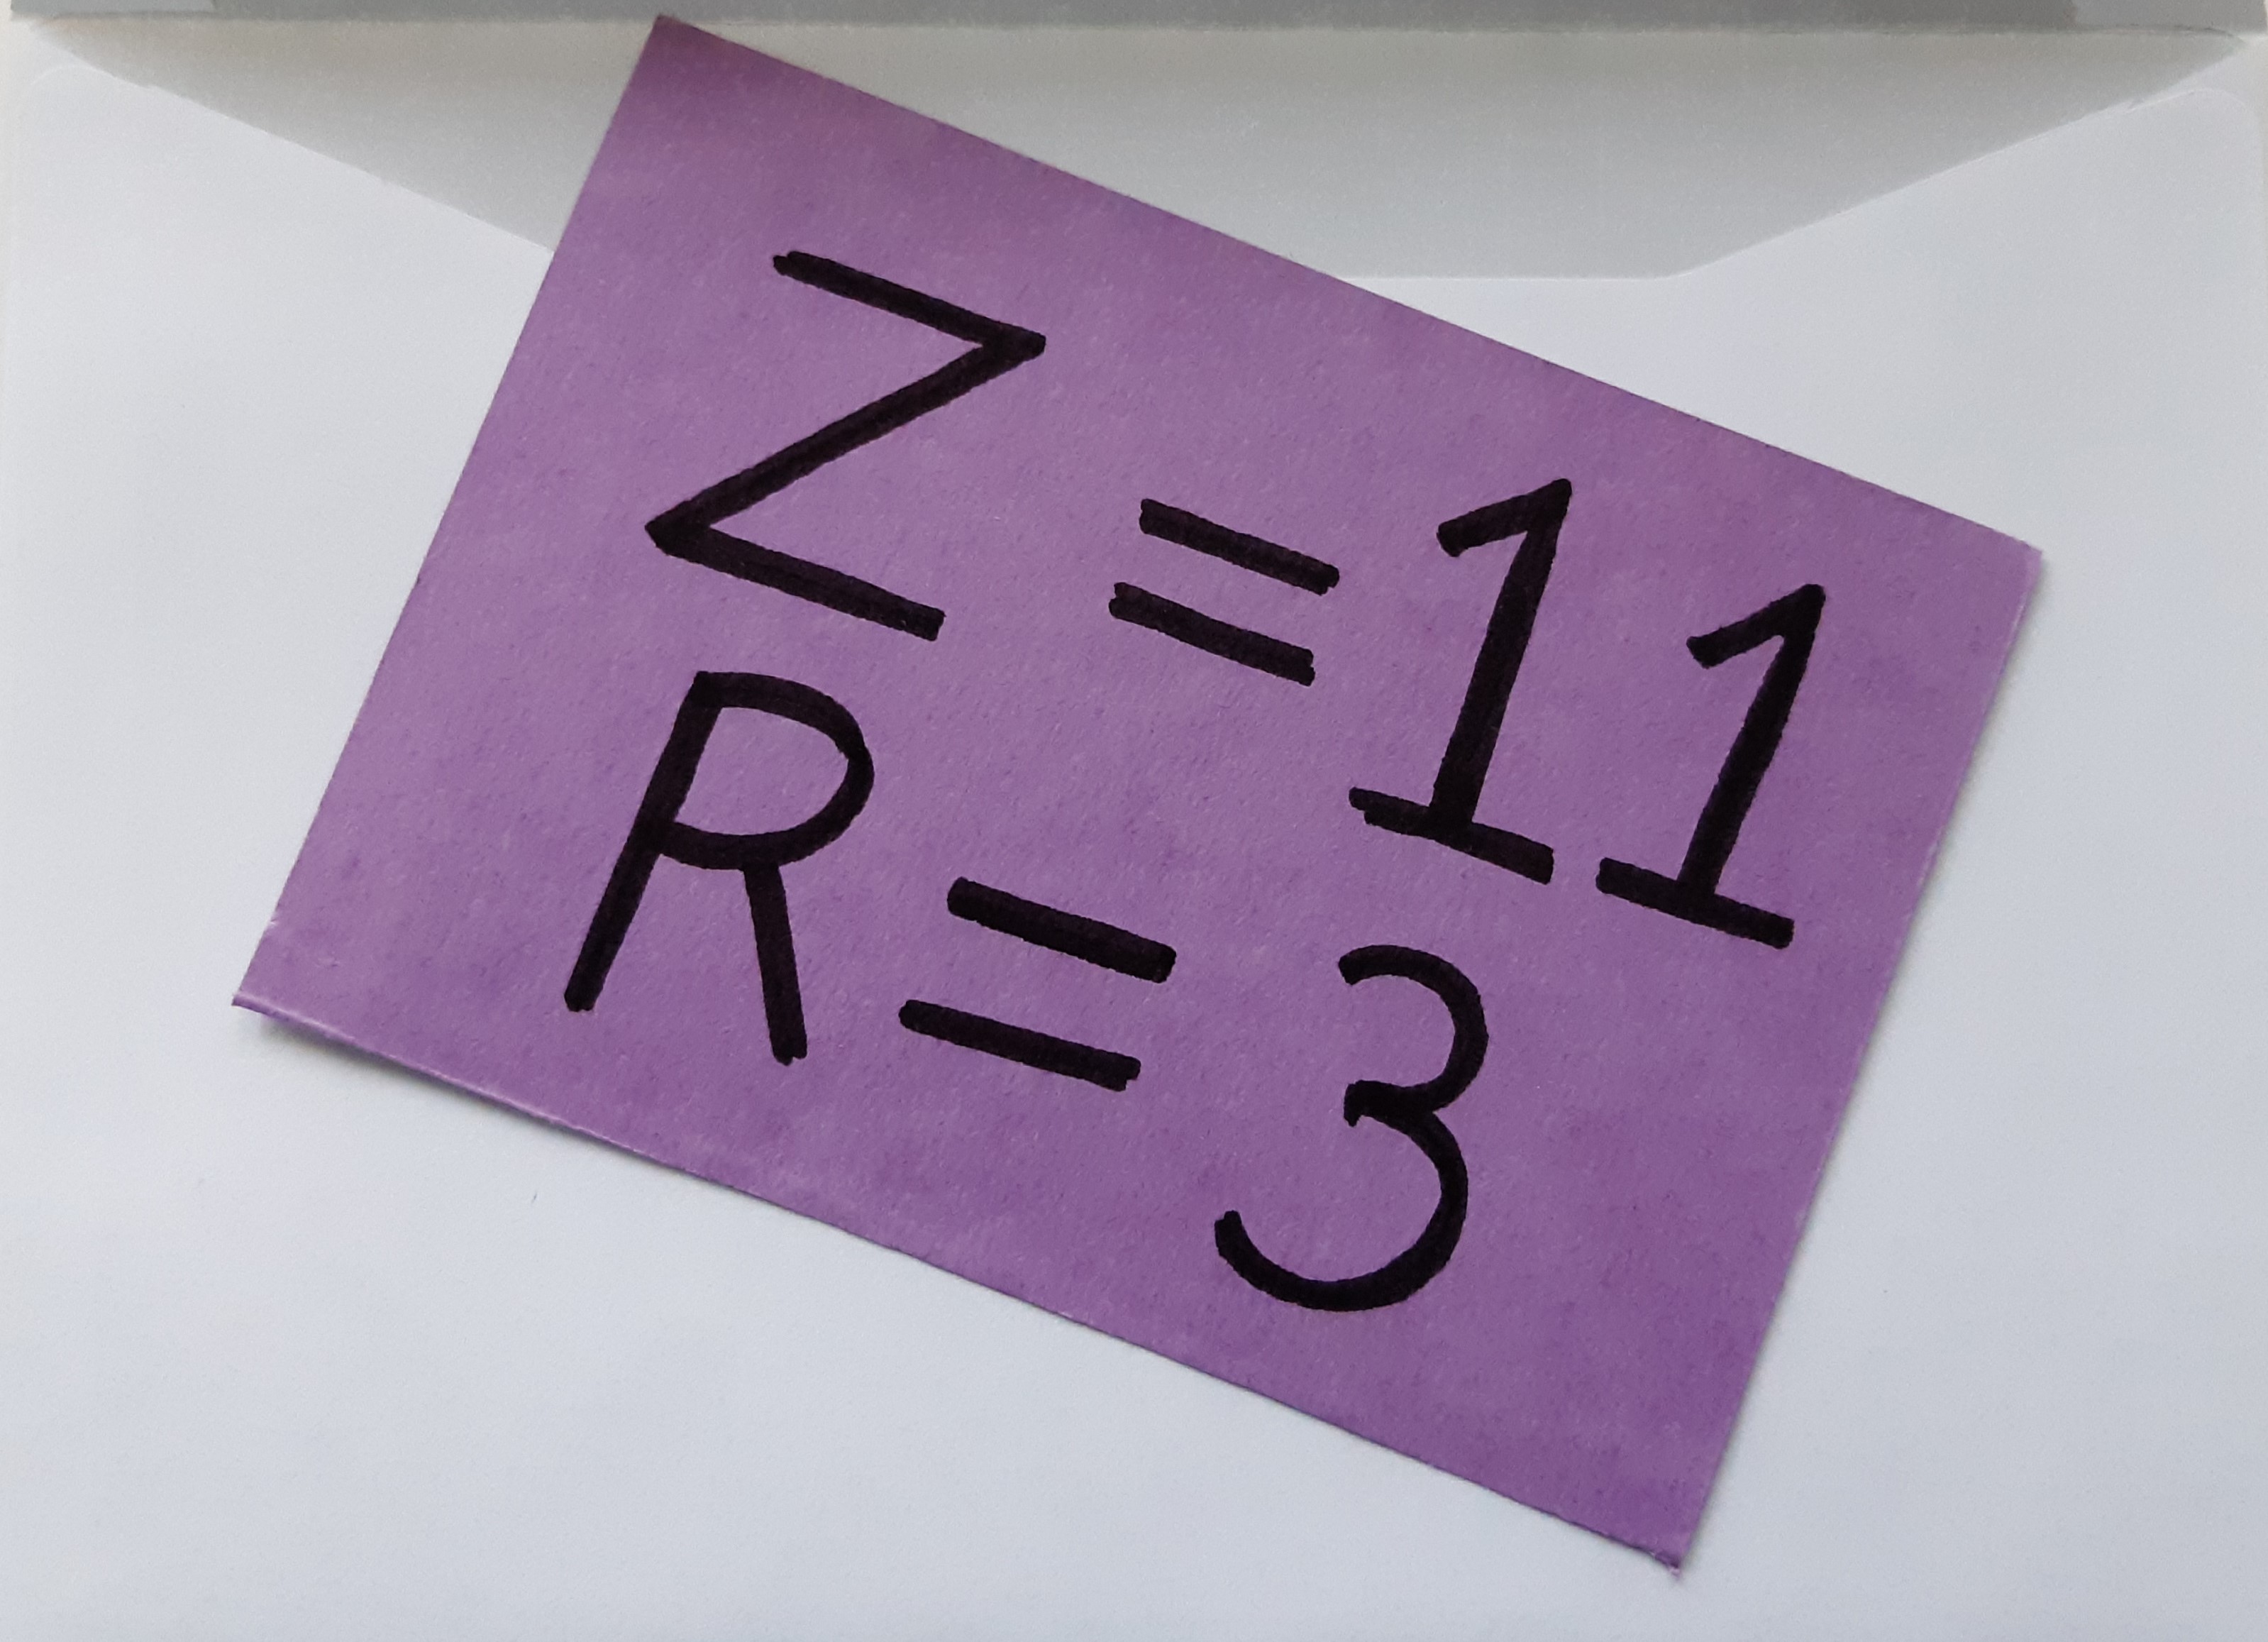 Z = 11
R = 3